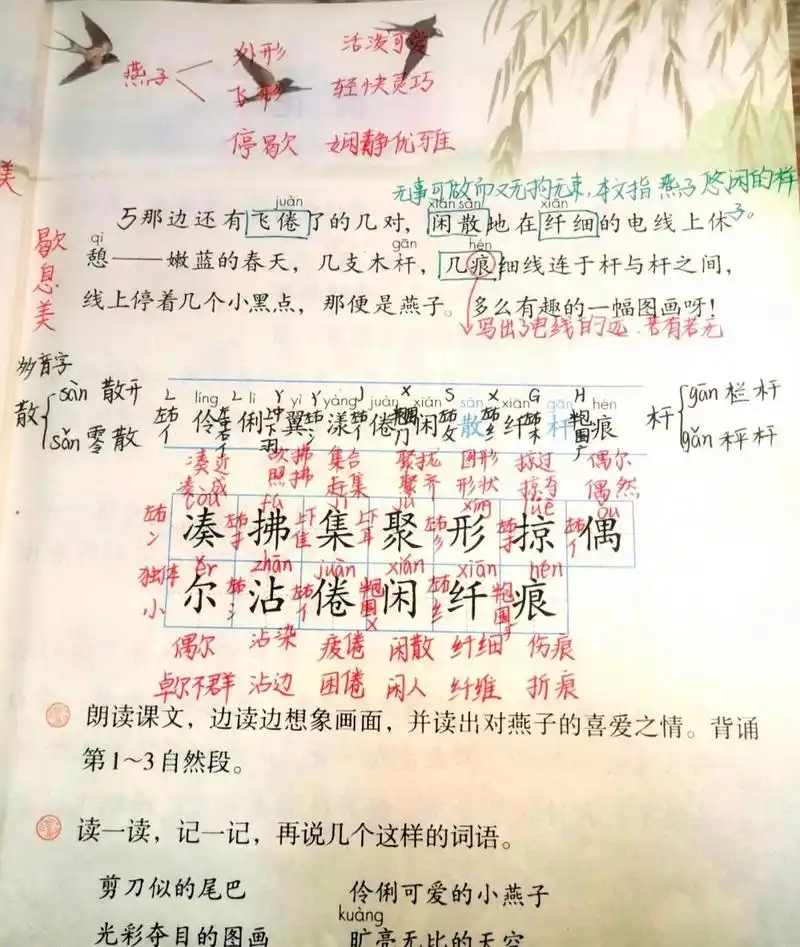 燕子
外形 活泼可爱
飞形 轻快灵巧
停歇 娴静优雅
美
无事可做而又无拘无束,本文指燕子悠闲的样子。
juàn xián sǎn xiān
5那边还有飞倦了的几对,闲散地在纤细的电线上休
qì gān hén
憩——嫩蓝的春天,几支木杆,几痕细线连于杆与杆之间,
线上停着几个小黑点,那便是燕子。多么有趣的一幅图画呀!
歇息美
写出了电线的远,若有若无
多音字
散 sàn 散开 sǎn 零散
杆 gān 栏杆 gǎn 秤杆
líng lì yì yàng juàn xián sǎn xiān gān hén
伶 俐 翼 漾 倦 闲 散 纤 杆 痕
凑近 吹拂 集合 聚拢 图形 掠过 偶尔
凑成 照拂 赶集 聚齐 形状 掠夺 偶然
còu fú jí jù xíng lüè ǒu
凑 拂 集 聚 形 掠 偶
ěr zhān juàn xián xiān hén
尔 沾 倦 闲 纤 痕
偶尔 沾染 疲倦 闲散 纤细 伤痕
卓尔不群 沾边 困倦 闲人 纤维 折痕
朗读课文,边读边想象画面,并读出对燕子的喜爱之情。背诵
第1~3自然段。
读一读,记一记,再说几个这样的词语。
剪刀似的尾巴 伶俐可爱的小燕子
kuàng
光彩夺目的图画 旷亮无比的天空